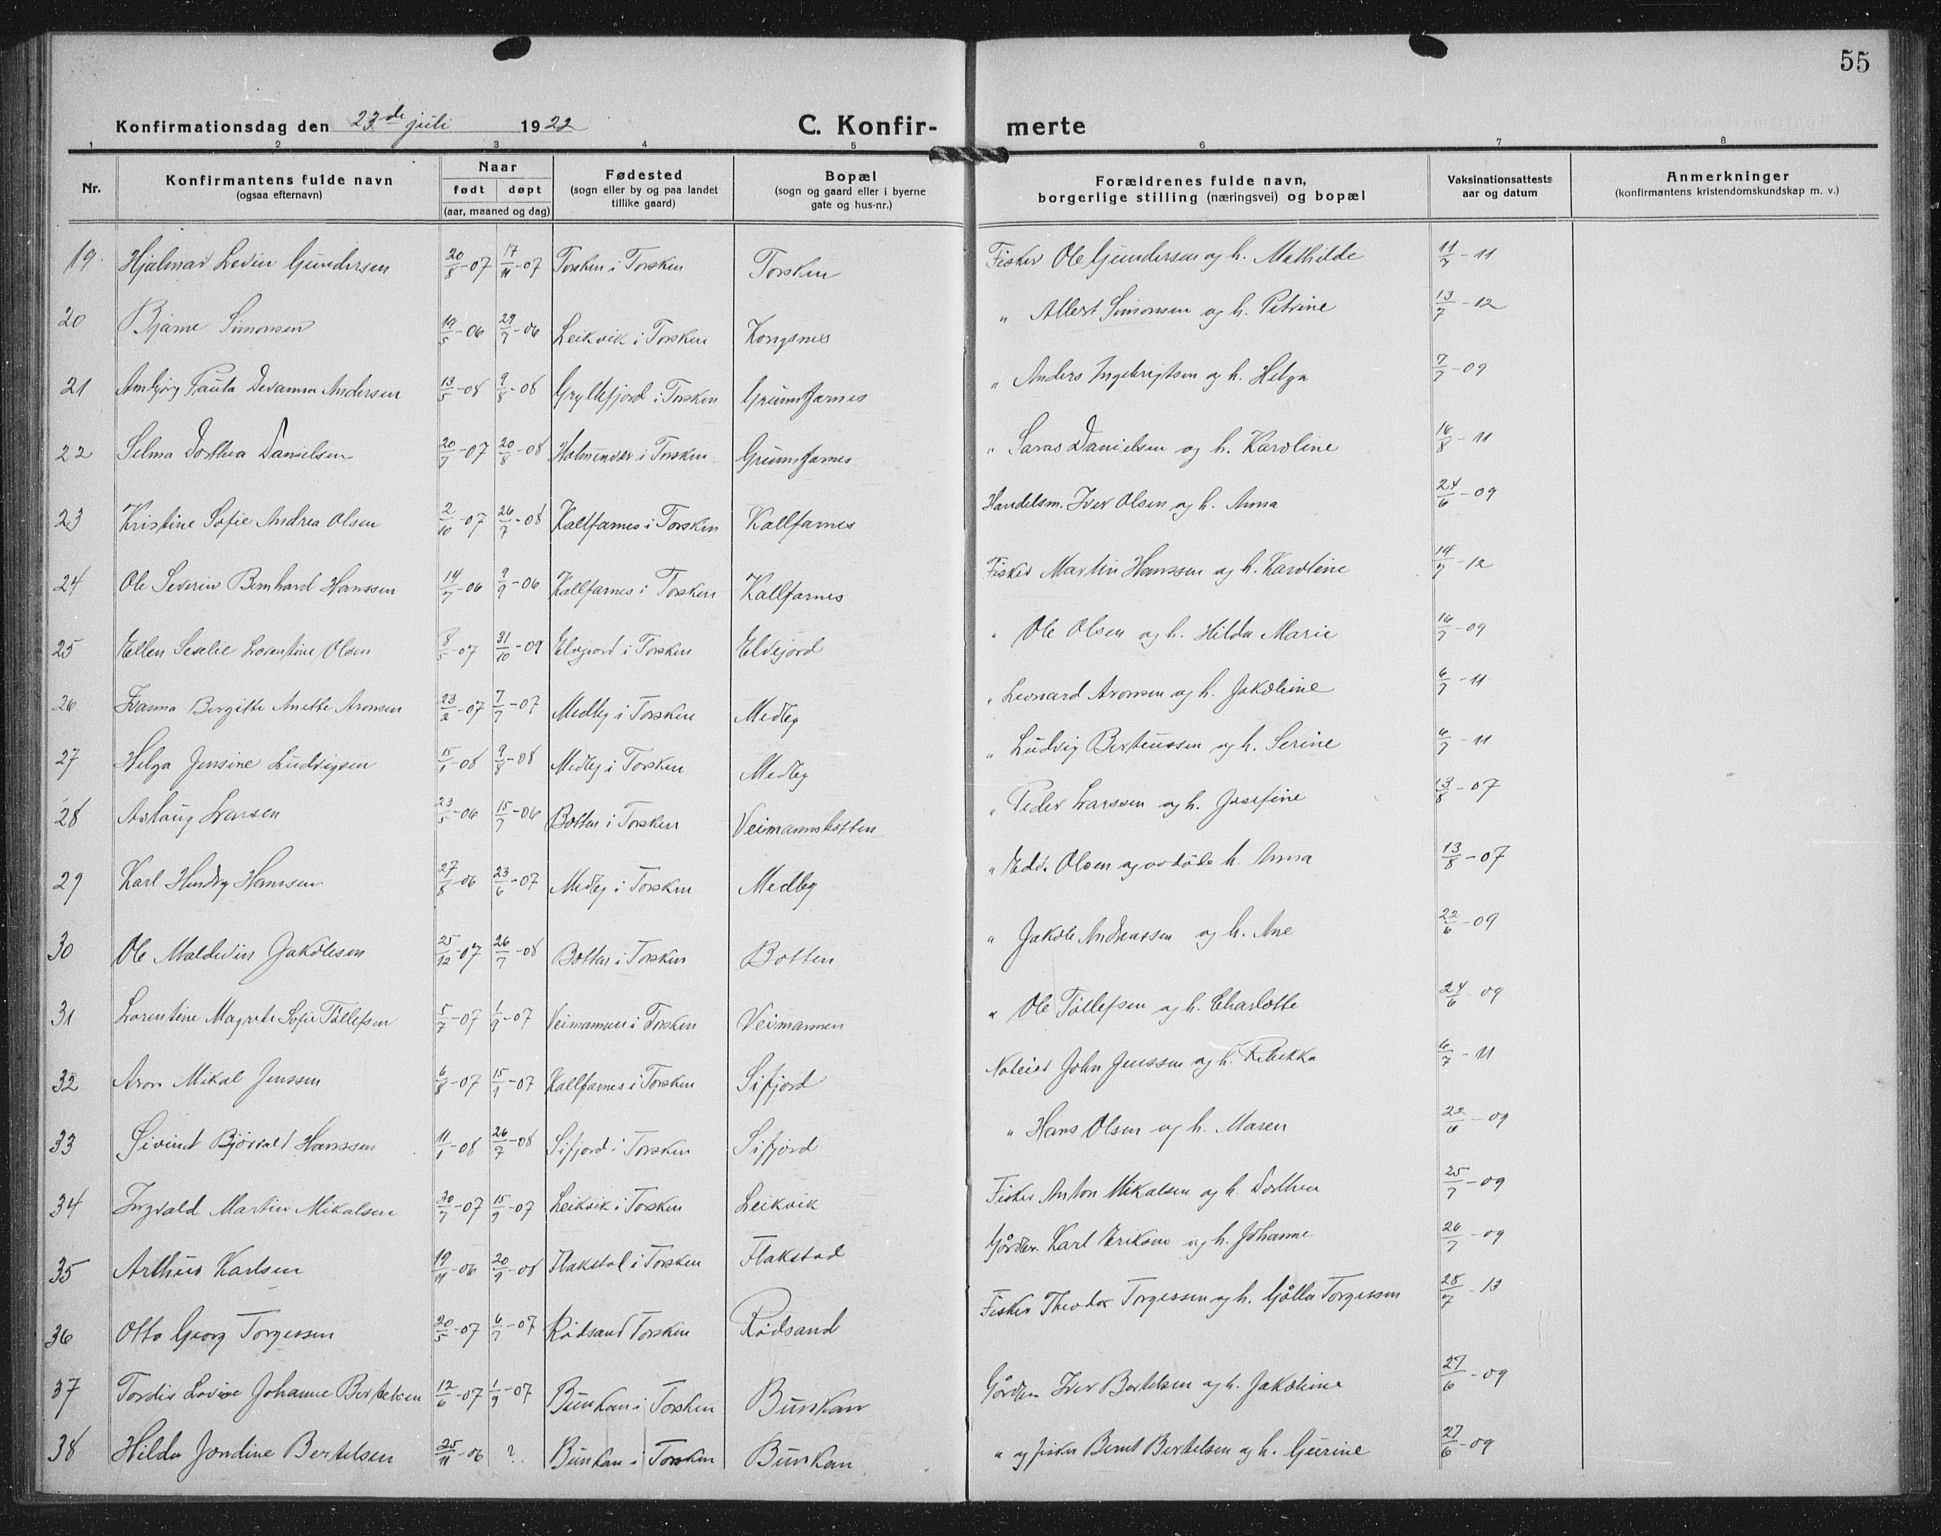 55
Konfirmationsdag den 23de juli 1922 C. Konfir- merte
1 2 3 4 5 6 7 8
Nr. Konfirmantens fulde navn (ogsaa efternavn) Naar født døpt (aar, maaned og dag) Fødested (sogn eller by og paa landet tillike gaard) Bopæl (sogn og gaard eller i byerne gate og hus-nr.) Forældrenes fulde navn, borgerlige stilling (næringsvei) og bopæl Vaksinationsattests aar og datum Anmerkninger (konfirmantens kristendomskundskap m. v.)
19. Hjalmar Levin Gundersen 20/8-07 17/11-07 Torsken i Torsken Torsken Fisker Ole Gundersen og h. Mathilde 11/7-11
20 Bjarne Simonsen 19/5-06 29/7-06 Leikvik i Torsken Kongsnes " Albert Simonsen og h. Petrine 13/7-12
21 Andersen 13/5-08 9/8-08 Gryllefjord i Torsken Grunnfarnes " Anders Ingebrigtsen og h. Helga 7/7-09
22 Selma Dorthea Danielsen 20/7-07 20/8-08 i Torsken Grunnfarnes " Danielsen og h. Karoline 16/8-11
23 Kristine Sofie Andrea Olsen 2/10-07 26/7-08 Kallfarnes i Torsken Kallfarnes Handelsm. Iver Olsen og h. Anna 24/6-09
24 Ole Severin Bernhard Hanssen 14/7-06 9/9-06 Kallfarnes i Torsken Kallfarnes Fisker Martin Hanssen og h. Karoline 14/7-12
25 Ellen Seselie Lorentine Olsen 8/5-07 31/10-09 Elvejord i Torsken Elvejord " Ole Olsen og h. Hilda Marie 16/7-09
26 Hanna Bergitte Anette Aronsen 23/2-07 7/7-07 Medby i Torsken Medby " Leonard Aronsen og h. Jakobine 6/7-11
27 Helga Jensine Ludvigsen 15/1-08 9/8-08 Medby i Torsken Medby " Ludvig Berteussen og h. Serine 6/7-11
28 Aslaug Larsen 23/5-06 15/7-06 Botten i Torsken Veimannsbotten " Peder Larssen og h. Josefine 13/8-07
29 Karl Hanssen 27/8-06 23/6-07 Medby i Torsken Medby " Olsen og h. Anna 13/8-07
30 Ole Maldevin Jakobsen 25/12-07 26/7-08 Botten i Torsken Botten " Jakob Andreassen og h. Ane 22/6-09
31 Lorentine Magrete Sofie Tollefsen 5/7-07 1/9-07 Veimannen i Torsken Veimannen " Ole Tollefsen og h. Charlotte 24/6-09
32 Aron Mikal Jenssen 6/8-07 15/9-07 Kallfarnes i Torsken Sifjord Noteier John Jenssen og h. Rebekka 6/7-11
33 Eivind Bjørvald Hanssen 11/1-08 26/7-08 Sifjord i Torsken Sifjord " Hans Olsen og h. Maren 22/6-09
34 Ingvald Martin Mikalsen 30/7-07 15/9-07 Leikvik i Torsken Leikvik Fisker Anton Mikalsen og h. Dorthea 25/7-09
35 Arthur Karlsen 19/11-06 20/9-08 Flakstad i Torsken Flakstad Gårdbr. Karl Eriksen og h. Johanne 26/7-09
36 Otto Georg Torgessen 20/5-07 6/7-07 Rødsand Torsken Rødsand Fisker Theodor Torgessen og h. Torgessen 28/7-13
37 Tordis Lovise Johanne Bertelsen 12/6-07 1/9-07 Bunkan i Torsken Bunkan Gårdbr. Iver Bertelsen og h. Jakobine 27/6-09
38 Hilda Jondine Bertelsen 25/11-06 ? Bunkan i Torsken Bunkan " og fisker Bernt Bertelsen og h. Gurine 27/6-09